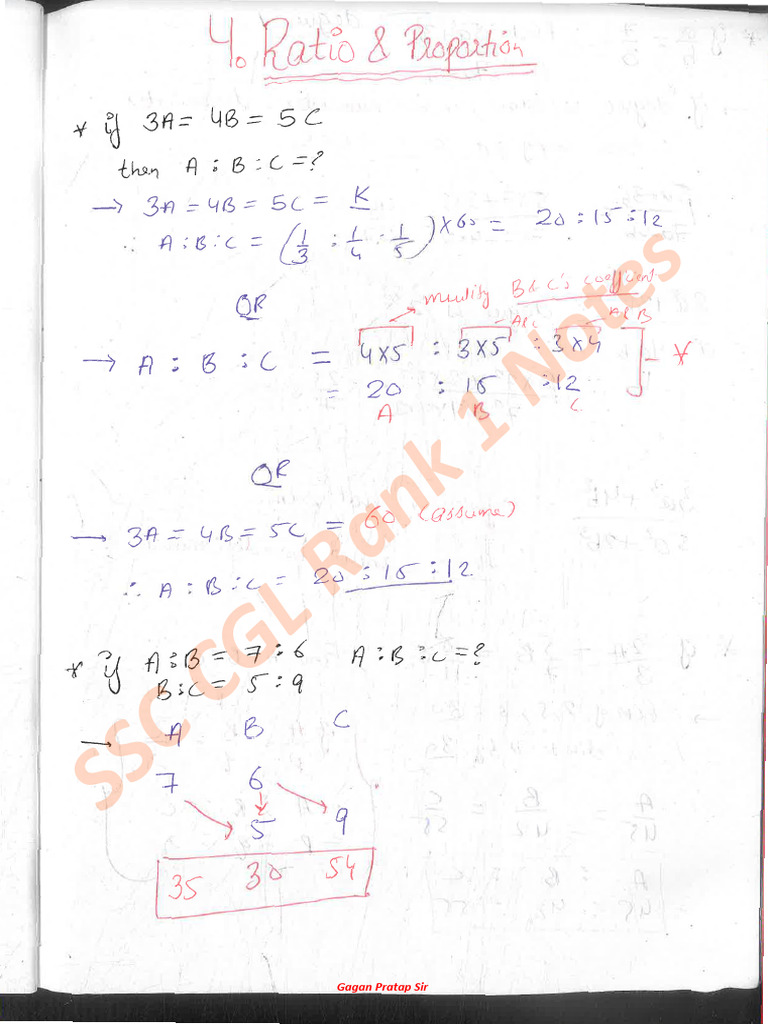 4. Ratio & Proportion
* if 3A = 4B = 5C
then A : B : C = ?
→ 3A = 4B = 5C = K
∴ A : B : C = (1/3 : 1/4 : 1/5) × 60 = 20 : 15 : 12
OR
multiply B & C's coefficient
A & C
A & B
→ A : B : C = 4×5 : 3×5 : 3×4
= 20 : 15 : 12
A B C
OR
→ 3A = 4B = 5C = 60 (assume)
∴ A : B : C = 20 : 15 : 12
* if A : B = 7 : 6 A : B : C = ?
B : C = 5 : 9
→ A B C
7 6
5 9
35 30 54
SSC CGL Rank 1 Notes
Gagan Pratap Sir